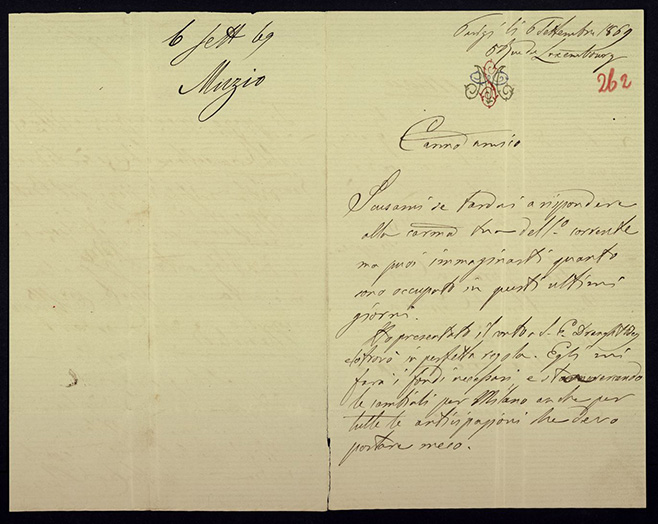 6 Sett 69
Muzio
Parigi li 6 Settembre 1869
6 Rue de Luxembourg
262
Carmo amico
Scusami se tardai a rispondere
alla carma tua del 1.o corrente
ma puoi immaginarti quanto
sono occupato in questi ultimi
giorni.
Ho presentato il conto a S. E. Draneht Bey
e lo trovò in perfetta regola. Egli mi
farà i fondi necessari, e sta
le cambiali per Milano anche per
tutte le anticipazioni che devo
portare meco.